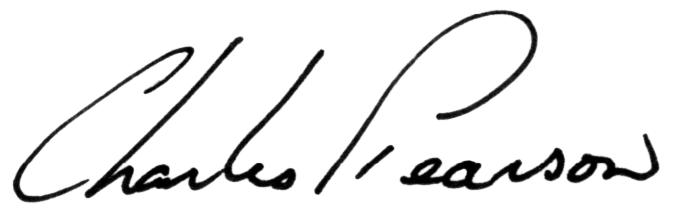 Charles Pearson